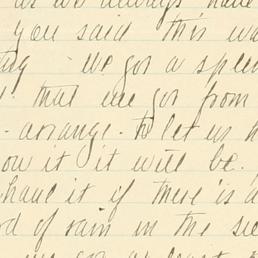 as we always have
you said this wa
we got a splen
that we got from
- arrange. to let us h
ow it it will be.
have it if there is a
d of rain in the sie